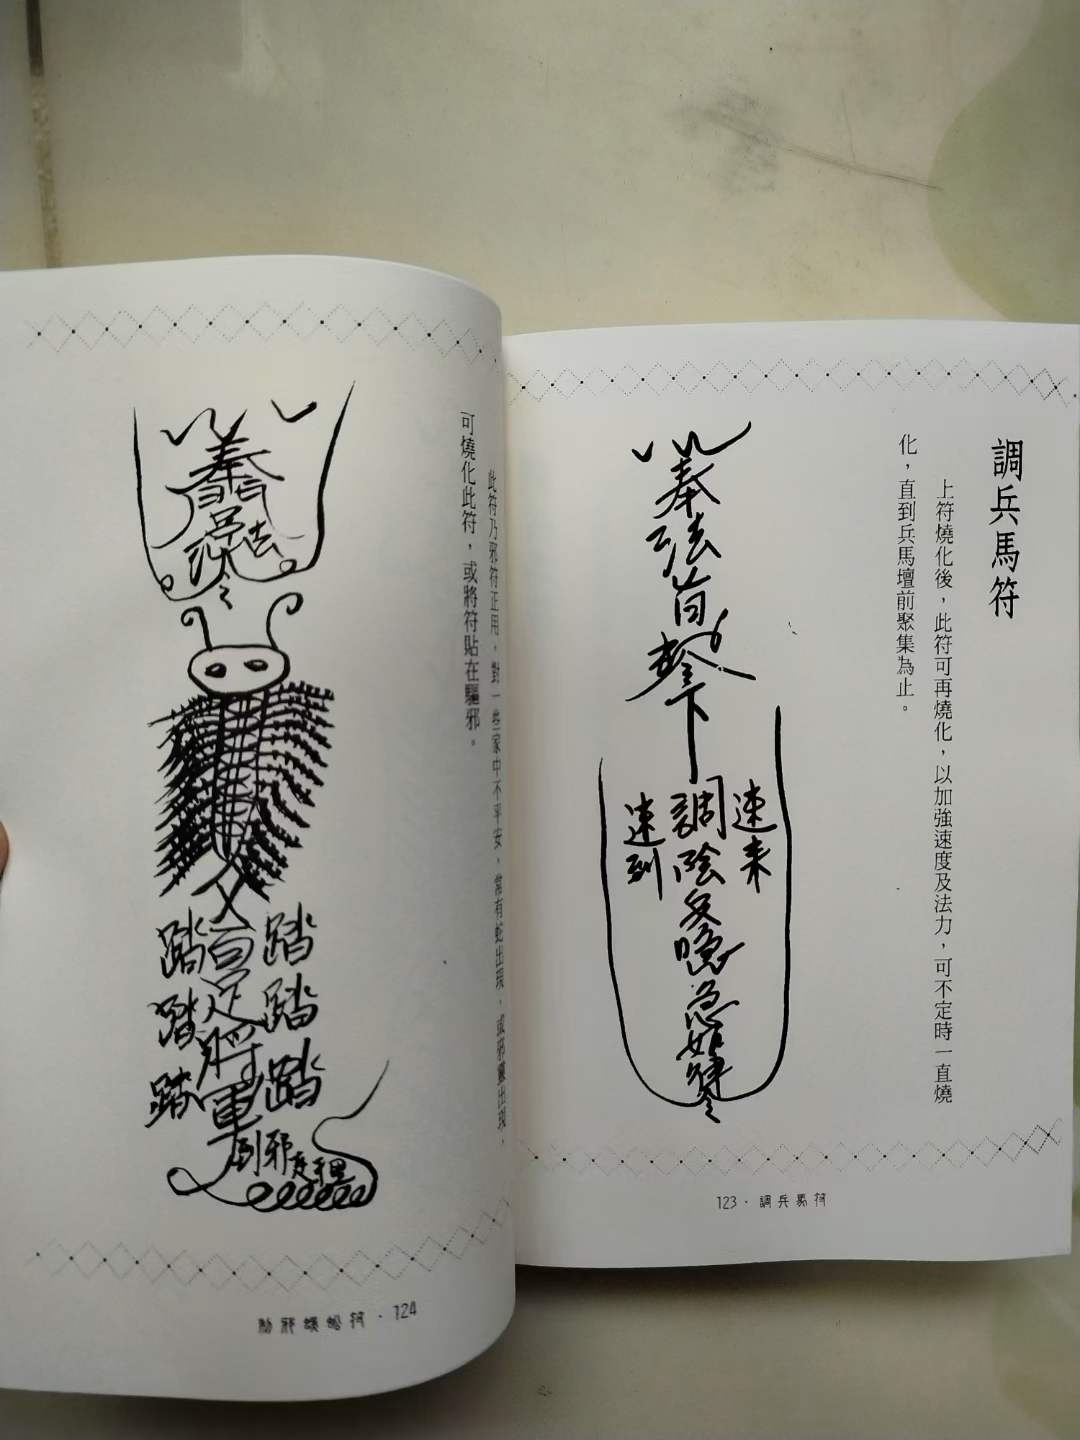 調兵馬符
上符燒化後，此符可再燒化，以加強速度及法力，可不定時一直燒
化，直到兵馬壇前聚集為止。
奉法旨
下
速来
調陰兵
急如律令
速到
123 · 調兵馬符
此符乃邪符正用，對一些家中不平安，常有蛇出現，或邪靈出現，
可燒化此符，或將符貼在驅邪。
奉
法
踏踏踏
百足將軍
踏踏踏
到邪走
符 · 124